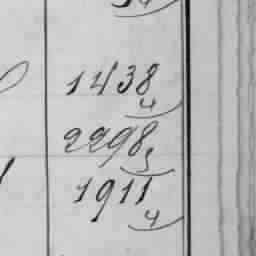 1438
4
2298
3
1911
4